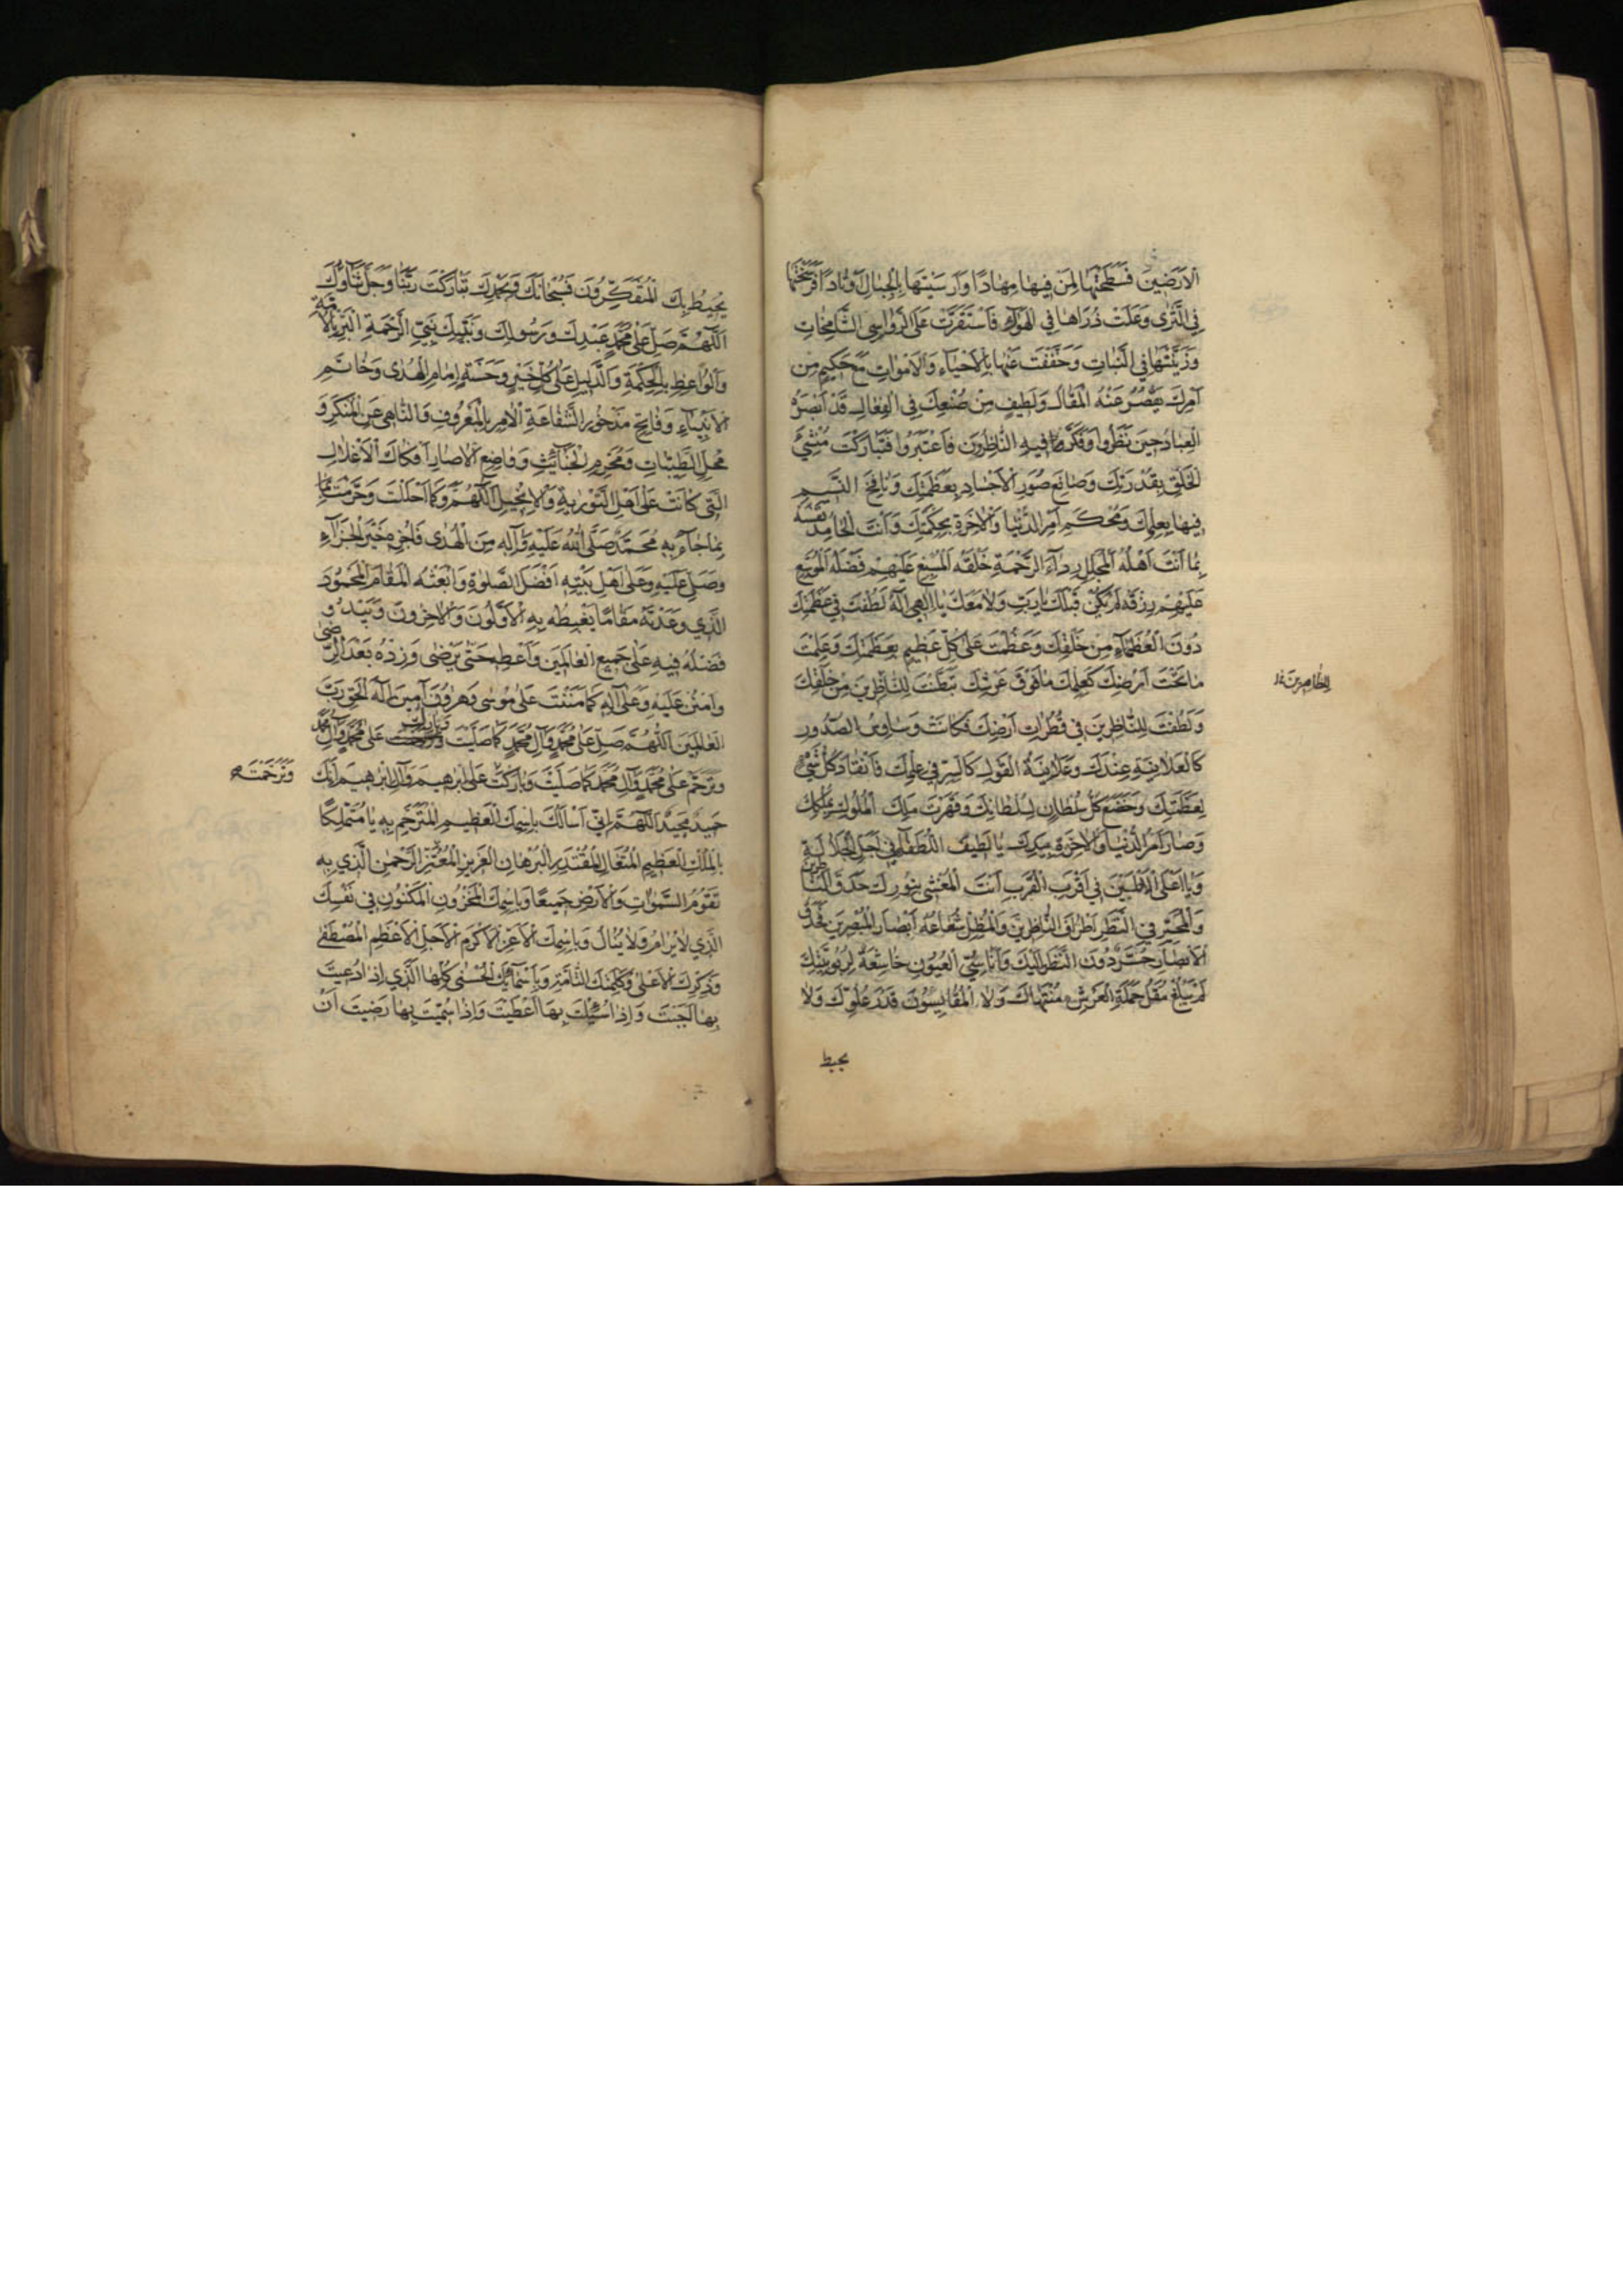 الْاَرَضِينَ فَسَطَحْتَهَا لِمَنْ فِيهَا مِهَادًا وَاَرْسَيْتَهَا بِالْجِبَالِ اَوْتَادًا فَرَسَّخْتَهَا
فِي الثَّرٰى وَعَلَتْ ذُرَاهَا فِي الْهَوَاءِ فَاسْتَقَرَّتْ عَلَى الرَّوَاسِي الشَّامِخَاتِ
وَزَيَّنْتَهَا فِي النَّبَاتِ وَخَفَّفْتَ عَنْهَا بِالْاَحْيَاءِ وَالْاَمْوَاتِ مَعَ حَكِيمٍ مِنْ
اَمْرِكَ يَقْصُرُ عَنْهُ الْمَقَالُ وَلَطِيفٍ مِنْ صُنْعِكَ فِي الْفِعَالِ قَدْ اَبْصَرَهُ
الْعِبَادُ حِينَ نَظَرُوا وَفَكَّرَ فِيهِ النَّاظِرُونَ فَاعْتَبَرُوا فَتَبَارَكْتَ مُنْشِئَ
الْخَلْقِ بِقُدْرَتِكَ وَصَانِعَ صُوَرِ الْاَجْسَادِ بِعَظَمَتِكَ وَنَافِخَ النَّسِيمِ
فِيهَا بِعِلْمِكَ وَمُحْكِمَ اَمْرِ الدُّنْيَا وَالْاٰخِرَةِ بِحِكْمَتِكَ وَاَنْتَ الْحَامِدُ نَفْسَهُ
بِمَا اَنْتَ اَهْلُهُ الْمُجَلِّلُ رِدَاءَ الرَّحْمَةِ خَلْقَهُ الْمُسْبِغُ عَلَيْهِمْ فَضْلَهُ الْمُوَسِّعُ
عَلَيْهِمْ رِزْقَهُ لَمْ يَكُنْ قَبْلَكَ يَارَبِّ وَلَا مَعَكَ يَا اِلٰهِي اِلٰهٌ لَطُفْتَ فِي عَظَمَتِكَ
دُونَ الْعُظَمَاءِ مِنْ خَلْقِكَ وَعَظُمْتَ عَلٰى كُلِّ عَظِيمٍ بِعَظَمَتِكَ وَعَلِمْتَ
مَا تَحْتَ اَرْضِكَ كَعِلْمِكَ مَا فَوْقَ عَرْشِكَ تَبَطَّنْتَ لِلنَّاظِرِينَ مِنْ خَلْقِكَ
للظاهرين
وَلَطُفْتَ لِلنَّاظِرِينَ فِي قُطُرَاتِ اَرْضِكَ فَكَانَتْ وَسَاوِسُ الصُّدُورِ
كَالْعَلَانِيَةِ عِنْدَكَ وَعَلَانِيَةُ الْقَوْلِ كَالسِّرِّ فِي عِلْمِكَ فَانْقَادَ كُلُّ شَيْءٍ
لِعَظَمَتِكَ وَخَضَعَ كُلُّ سُلْطَانٍ لِسُلْطَانِكَ وَقَهَرْتَ مُلْكَ الْمُلُوكِ بِمُلْكِكَ
وَصَارَ اَمْرُ الدُّنْيَا وَالْاٰخِرَةِ بِيَدِكَ يَا لَطِيفَ اللُّطَفَاءِ فِي اَجَلِّ الْجَلَالَةِ
وَيَا اَعْلَى الْاَعْلَيْنَ فِي اَقْرَبِ الْقُرْبِ اَنْتَ الْمُغْشِي بِنُورِكَ حَدَقَ النَّاظِرِينَ
وَالْمُحَيِّرُ فِي النَّظَرِ اَطْرَافَ النَّاظِرِينَ وَالْمُظِلُّ شُعَاعُهُ اَبْصَارَ الْمُبْصِرِينَ فَحَدَقُ
الْاَبْصَارِ حُسَّرٌ دُونَ النَّظَرِ اِلَيْكَ وَاَنَاسِيُّ الْعُيُونِ خَاشِعَةٌ لِرُبُوبِيَّتِكَ
لَمْ يَبْلُغْ مُقَلُ حَمَلَةِ الْعَرْشِ مُنْتَهَاكَ وَلَا الْمُقَايِسُونَ قَدْرَ عُلُوِّكَ وَلَا
يحيط
يُحِيطُ بِكَ الْمُتَفَكِّرُونَ فَسُبْحَانَكَ وَبِحَمْدِكَ تَبَارَكْتَ رَبَّنَا وَجَلَّ ثَنَاؤُكَ
اَللّٰهُمَّ صَلِّ عَلٰى مُحَمَّدٍ عَبْدِكَ وَرَسُولِكَ وَنَبِيِّكَ نَبِيِّ الرَّحْمَةِ الْبَرِّ بِالْاُمَّةِ
وَالْوَاعِظِ بِالْحِكْمَةِ وَالدَّلِيلِ عَلٰى كُلِّ خَيْرٍ وَحَسَنَةٍ اِمَامِ الْهُدٰى وَخَاتَمِ
الْاَنْبِيَاءِ وَفَاتِحِ مَذْخُورِ الشَّفَاعَةِ الْاٰمِرِ بِالْمَعْرُوفِ وَالنَّاهِي عَنِ الْمُنْكَرِ وَ
مُحِلِّ الطَّيِّبَاتِ وَمُحَرِّمِ الْخَبَائِثِ وَوَاضِعِ الْاٰصَارِ اَفَكَّاكَ الْاَغْلَالِ
الَّتِي كَانَتْ عَلٰى اَهْلِ التَّوْرٰيةِ وَالْاِنْجِيلِ اَللّٰهُمَّ وَكَمَا اَحْلَلْتَ وَحَرَّمْتَ مِمَّا
بِمَا جَاءَ بِهِ مُحَمَّدٌ صَلَّى اللّٰهُ عَلَيْهِ وَاٰلِهِ مِنَ الْهُدٰى فَاجْزِهِ خَيْرَ الْجَزَاءِ
وَصَلِّ عَلَيْهِ وَعَلٰى اَهْلِ بَيْتِهِ اَفْضَلَ الصَّلٰوةِ وَابْعَثْهُ الْمَقَامَ الْمَحْمُودَ
الَّذِي وَعَدْتَهُ مَقَامًا يَغْبِطُهُ بِهِ الْاَوَّلُونَ وَالْاٰخِرُونَ وَيَبْدُو
فَضْلُهُ فِيهِ عَلٰى جَمِيعِ الْعَالَمِينَ وَاَعْطِهِ حَتّٰى يَرْضٰى وَزِدْهُ بَعْدَ الرِّضٰى
وَامْنُنْ عَلَيْهِ وَعَلٰى اٰلِهِ كَمَا مَنَنْتَ عَلٰى مُوسٰى وَهٰرُونَ اٰمِينَ اِلٰهَ الْحَقِّ رَبَّ
الْعَالَمِينَ اَللّٰهُمَّ صَلِّ عَلٰى مُحَمَّدٍ وَاٰلِ مُحَمَّدٍ كَمَا صَلَّيْتَ وَبَارِكْ عَلٰى مُحَمَّدٍ وَاٰلِ مُحَمَّدٍ
وَتَرَحَّمْ عَلٰى مُحَمَّدٍ وَاٰلِ مُحَمَّدٍ كَمَا صَلَّيْتَ وَبَارَكْتَ عَلٰى اِبْرٰهِيمَ وَاٰلِ اِبْرٰهِيمَ اِنَّكَ
وَتَرَحَّمْتَ
حَمِيدٌ مَجِيدٌ اَللّٰهُمَّ اِنِّي اَسْاَلُكَ بِاسْمِكَ الْعَظِيمِ الْمُتَرَحَّمِ بِهِ يَا مُتَمَلِّكًا
بِالْمُلْكِ الْعَظِيمِ الْمُتَعَالِ الْمُقْتَدِرِ الْبُرْهَانِ الْعَزِيزِ الْمُعَزِّزِ الرَّحْمٰنِ الَّذِي بِهِ
تَقُومُ السَّمٰوَاتِ وَالْاَرْضُ جَمِيعًا وَبِاسْمِكَ الْمَخْزُونِ الْمَكْنُونِ فِي نَفْسِكَ
الَّذِي لَا يُرَامُ وَلَا يُنَالُ وَبِاسْمِكَ الْاَعَزِّ الْاَكْرَمِ الْاَجَلِّ الْاَعْظَمِ الْمُصْطَفٰى
وَذِكْرِكَ الْاَعْلٰى وَكَلِمَتِكَ التَّامَّةِ وَبِاَسْمَائِكَ الْحُسْنٰى كُلِّهَا الَّذِي اِذَا دُعِيتَ
بِهَا اَجَبْتَ وَاِذَا سُئِلْتَ بِهَا اَعْطَيْتَ وَاِذَا سُمِّيْتَ بِهَا رَضِيتَ اَنْ